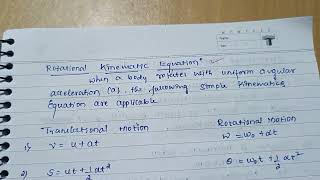 Rotational Kinematic Equation :-
when a body rotates with uniform angular
acceleration (α). the following simple kinematics
Equation are applicable.
Translational Motion Rotational Motion
1) v = u + at ω = ω₀ + αt
2) S = ut + ½ at² θ = ω₀t + ½ αt²